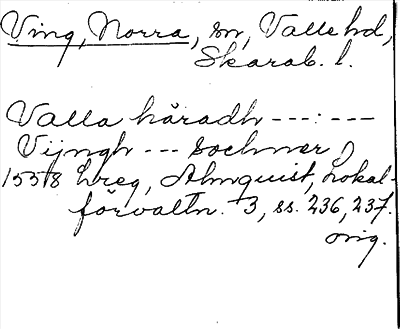 Ving, Norra, sn, Valle hd,
Skarab. l.
Valla häradh ---:---
Vijngh --- sochner
1558 Lreg, Almquist, Lokal-
förvaltn. 3, ss. 236, 237.
orig.